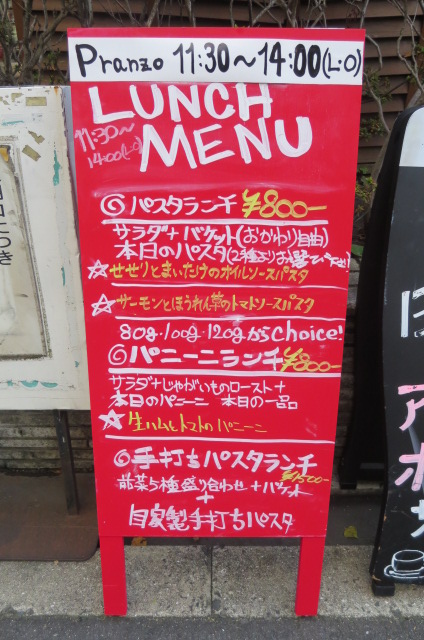 Pranzo 11:30～14:00(L·O)
LUNCH
MENU
11:30～
14:00(L.O)
◎パスタランチ ¥800-
サラダ+バケット(おかわり自由)
本日のパスタ(2種よりお選び下さい)
☆せせりとまいたけのオイルソースパスタ
☆サーモンとほうれん草のトマトソースパスタ
80g·100g·120gからchoice!
◎パニーニランチ ¥800-
サラダ+じゃがいものロースト+
本日のパニーニ 本日の一品
☆生ハムとトマトのパニーニ
◎手打ちパスタランチ
¥1500-
前菜5種盛り合わせ+バケット
+
自家製手打ちパスタ
につき
は
ア
ポ